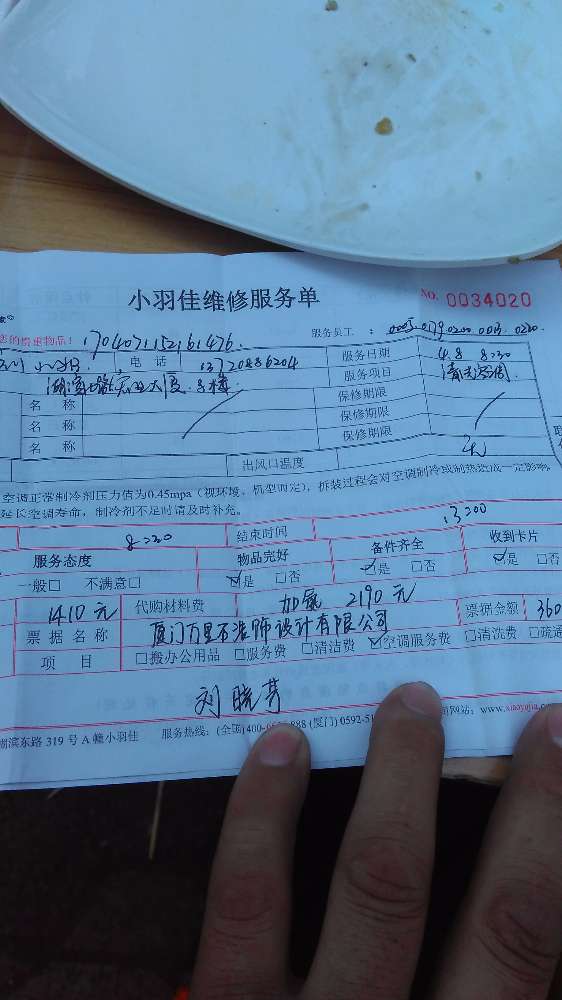 小羽佳维修服务单
NO. 0034020
您的贵重物品: 170407115216476 服务员工 : 0005 0179 0200 0013 0220.
小姐 电 话 13720886204 服务日期 4.8 8:30
服务项目 清洗空调
名 称 保修期限
名 称 保修期限
名 称 保修期限
出风口温度
空调正常制冷剂压力值为0.45mpa(视环境、机型而定),拆装过程会对空调制冷或制热造成一定影响。
延长空调寿命,制冷剂不足时请及时补充。
8:30 结束时间 13:00
服务态度 物品完好 备件齐全 收到卡片
一般□ 不满意□ ☑是 □否 ☑是 □否 ☑是 □否
1410元 代购材料费 加氟 2190元 票据金额 360
票据名称 厦门万里石装饰设计有限公司
项 目 □搬办公用品 □服务费 □清洁费 ☑空调服务费 □清洗费 □疏通
刘晓芳
湖滨东路 319 号 A 幢小羽佳 服务热线: (全国)400- 888 (厦门) 0592-51 网站: www.xiaoyujia